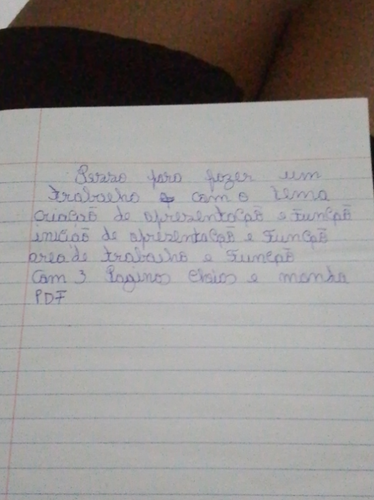 Peço para fazer um
trabalho com o tema
criação de apresentação e função
inicião de apresentação e função
area de trabalho e função
Com 3 Paginas e manda
PDF